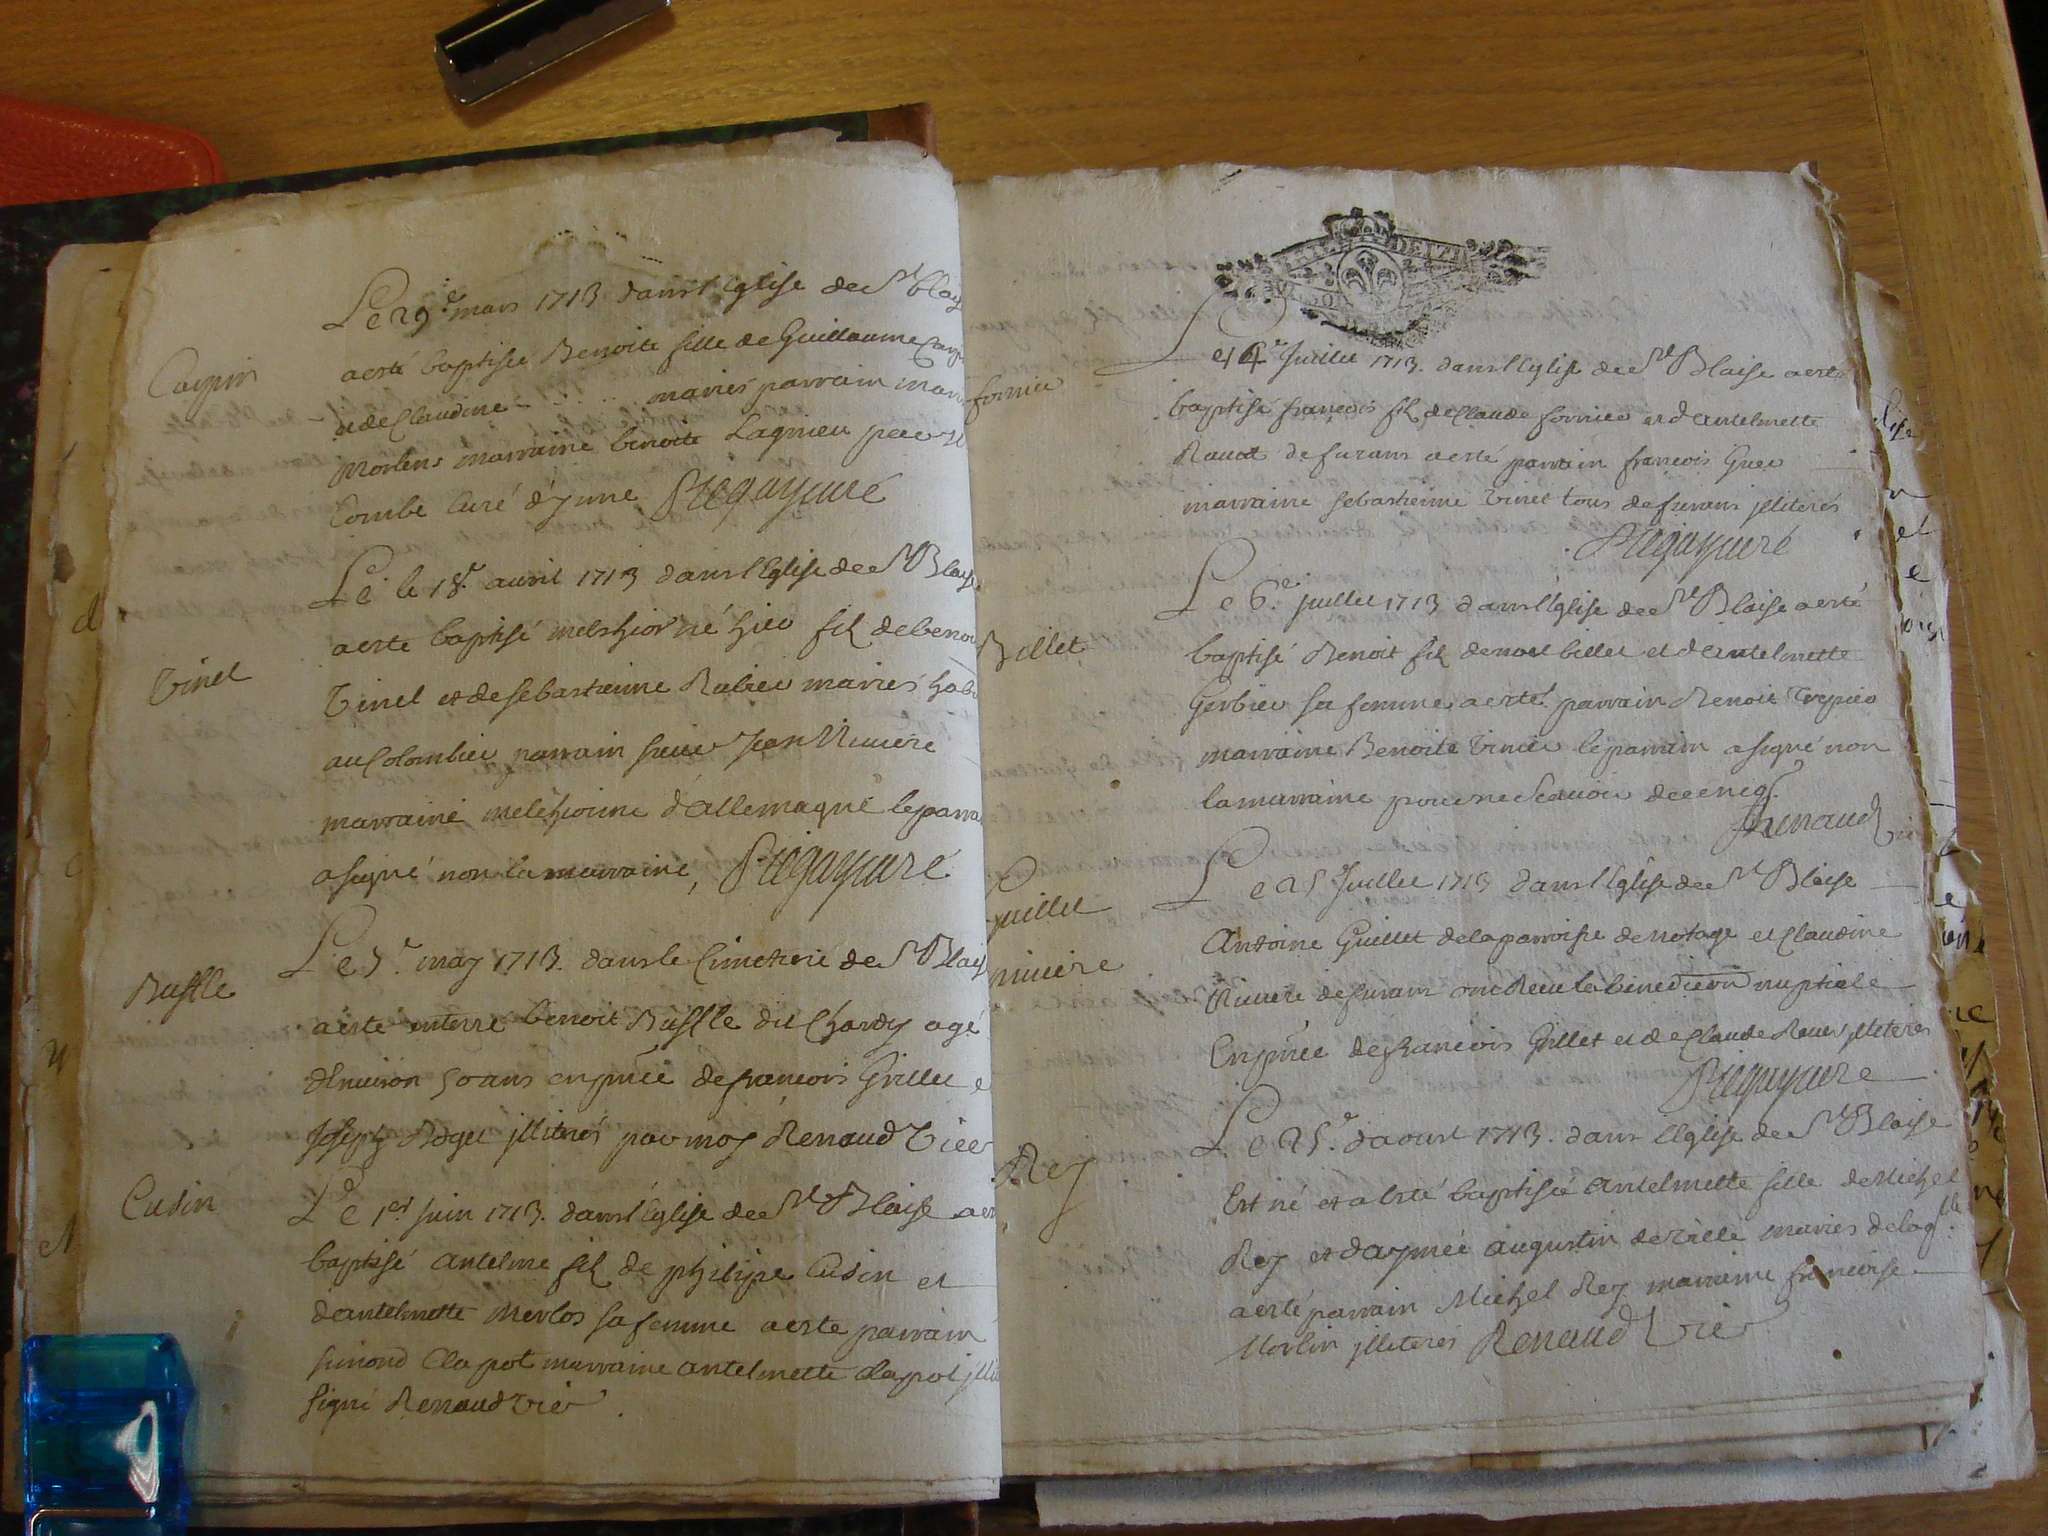 Le 29e mars 1713 dans l'Eglise de St Blais
Carpin
a esté baptisée Benoite fille de Guillaume Carpi
et de Claudine - ..... mariés parrain
Morlens marraine benoite Lagnieu
Combe Curé d'
Le le 18e avril 1713 dans l'Eglise de St Blaise
a esté baptisé melchior né hier fils de benoi
Vinet
Vinet et de sebastienne Rubier mariés hab
au Colombier parrain sieur Jean Riviere
marraine melchionne d'allemagne le parra
a signé non la marraine,
Le 5e may 1713 dans le Cimetiere de St Blais
Buffle
a esté enterré benoit Buffle dit Chardy agé
d'Environ 50 ans en pñce de francois Grillet e
Joseph Roget jlliterés par moy Renaud vier
Cusin
Le 1er juin 1713 dans l'Eglise de St Blaise a es
baptisé antelme fils de philipe Cusin et
d'antelmette Merlos sa femme a esté parrain
simond Clapot marraine antelmette Clapot jlli
signé Renaud vier
Le 14e Juillet 1713 dans l'Eglise de St Blaise a esté
fornier
baptisé françois fils de Claude fornier et d'antelmette
Ravat de furans a esté parrain francois Grer
marraine sebastienne Vinet tous de furans jlliterés
Le 6e juillet 1713 dans l'Eglise de St Blaise a esté
Billet
baptisé Benoit fils de noel billet et d'antelmette
Gerbier sa femme a esté parrain Benoit Trepier
marraine Benoite Vinier le parrain a signé non
la marraine pour ne scavoir de ce enqs.
Renaud vi
Le 25 Juillet 1713 dans l'Eglise de St Blaise
Guillet
Antoine Guillet de la parroisse de et Claudine
riviere
Riviere de furam ont Receu la benediction nuptiale
En pñce de francois Grillet et de Claude jlliteres
Le 25e d'aoust 1713 dans l'Eglise de St Blaise
Rey
Est né et a Esté baptisée antelmette fille de Michel
Rey et d'aymée augustin de ville mariés
a esté parrain Michel Rey marraine francoise
Morlin jlliterés Renaud vier